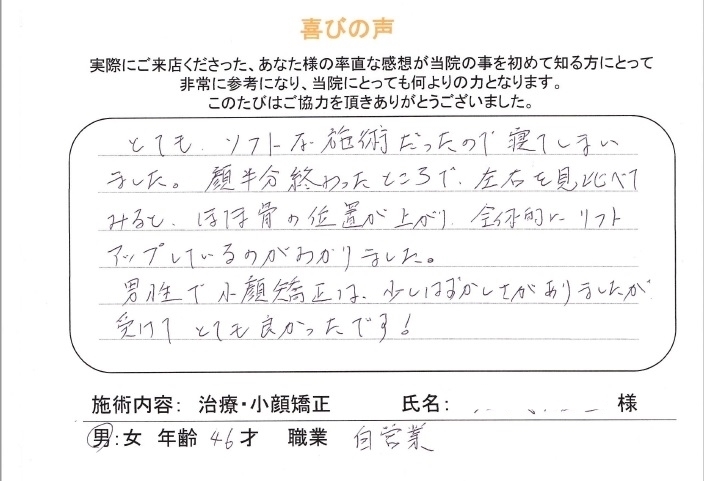 喜びの声
実際にご来店くださった、あなた様の率直な感想が当院の事を初めて知る方にとって
非常に参考になり、当院にとっても何よりの力となります。
このたびはご協力を頂きありがとうございました。
とても、ソフトな施術だったので寝てしまい
ました。顔半分終わったところで、左右を見比べて
みると、ほほ骨の位置が上がり、全体的にリフト
アップしているのがわかりました。
男性で小顔矯正は、少しはずかしさがありましたが
受けてとても良かったです!
施術内容: 治療・小顔矯正 氏名: 様
男:女 年齢 46才 職業 自営業